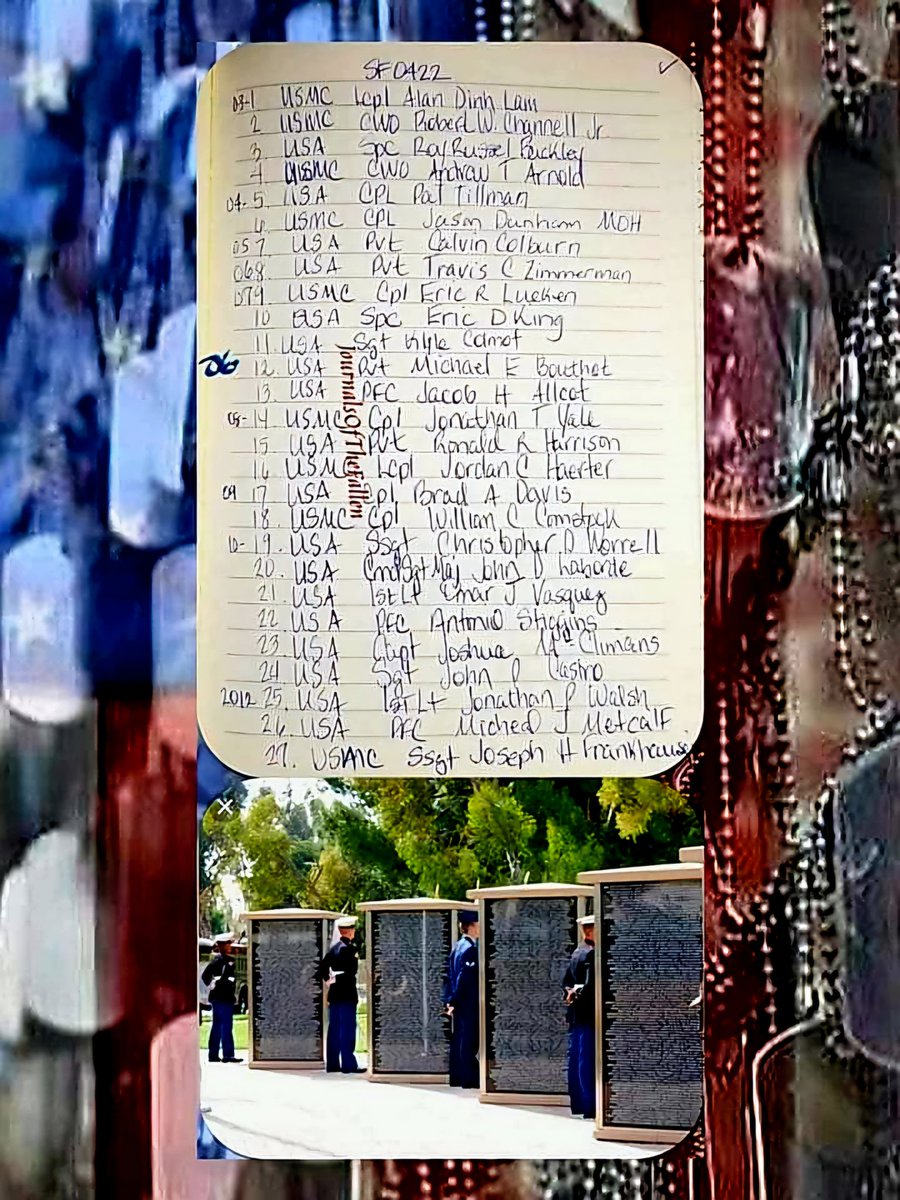 SF0422 ✓
03-1 USMC Lcpl Alan Dinh Lam
2 USMC CWO Robert W. Channell Jr
3 USA Spc Roy Russel Buckley
4 USMC CWO Andrew T Arnold
04-5. USA CPL Pat Tillman
6. USMC CPL Jason Dunham MOH
05 7. USA Pvt Calvin Colburn
068. USA Pvt Travis C Zimmerman
079. USMC Cpl Eric R Lueken
10 USA Spc Eric D King
11. USA Sgt Kyle Colnot
06 12. USA Pvt Michael E Bouthot
13. USA PFC Jacob H Allcot
08-14 USMC Cpl Jonathan T Yale
15 USA Pvt Ronald R Harrison
16 USMC Lcpl Jordan C Haerter
09 17 USA Cpl Brad A Davis
18. USMC Cpl Willian C Comstock
10-19. USA Ssgt Christopher D Worrell
20. USA Cmd Sgt Maj John D Laborde
21. USA 1st Lt Omar J Vasquez
22 USA PFC Antonio Stiggins
23 USA Capt Joshua Climans
24 USA Sgt John P Castro
2012 25. USA 1st Lt Jonathan P Walsh
26. USA PFC Micheal J Metcalf
27. USMC Ssgt Joseph H Frankhause
JournalsOfTheFallen